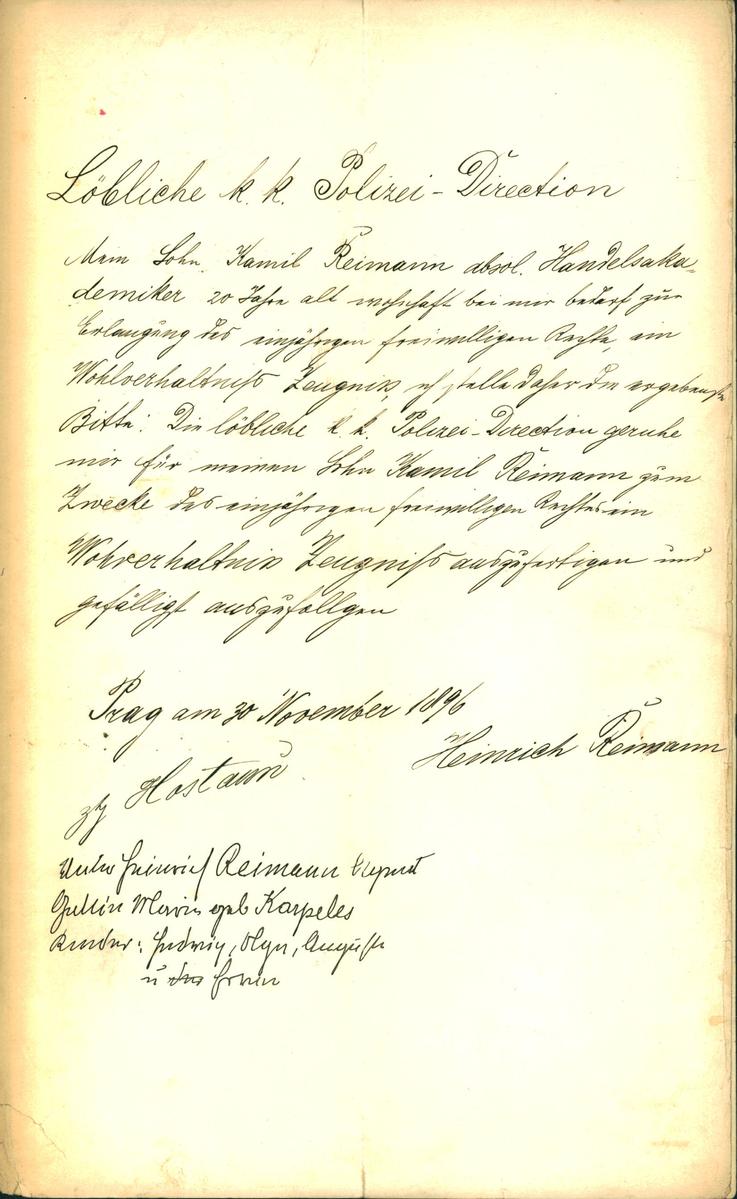 Löbliche k. k. Polizei-Direction
Mein Sohn Kamil Reimann absol. Handelsaka-
demiker 20 Jahre alt wohnhaft bei mir bedarf zur
Erlangung des einjährigen freiwilligen Rechte, ein
Wohlverhaltniss Zeugniss, ich stelle daher die ergebenste
Bitte: Die löbliche k. k. Polizei-Direction geruhe
mir für meinen Sohn Kamil Reimann zum
Zwecke des einjährigen freiwilligen Rechtes ein
Wohverhaltniss Zeugniss auszufertigen und
gefälligst auszufollgen
Prag am 30 November 1896
Heinrich Reimann
Hostaun
Vater Heinrich Reimann Agent
Gattin Marie geb Karpeles
Kinder: Hedwig, Olga, Auguste
u Erwin